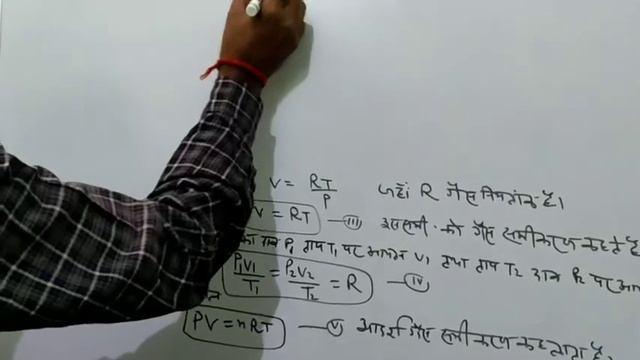 V = RT/P जहाँ R गैस नियतांक है।
V = RT — (III) इस समी. को गैस समीकरण कहते है
ताप T₁ पर आयतन V₁ तथा ताप T₂ दाब P₂ पर
P₁V₁/T₁ = P₂V₂/T₂ = R — (IV)
PV = nRT — (V) आदर्श गैस समीकरण कहलाता है.